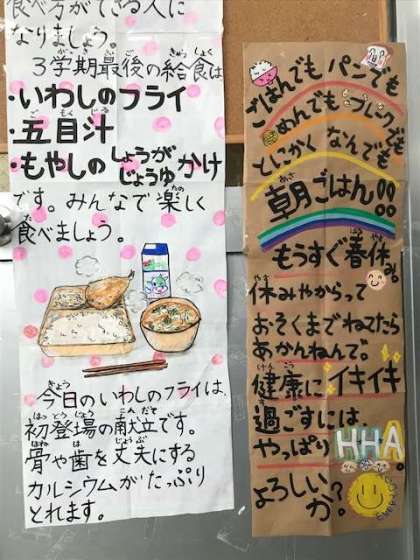 食べ方ができる人に
なりましょう。
3学期最後の給食は
・いわしのフライ
・五目汁
・もやしのしょうがじょうゆかけ
です。みんなで楽しく
食べましょう。
今日のいわしのフライは、
初登場の献立です。
骨や歯を丈夫にする
カルシウムがたっぷり
とれます。
ごはんでもパンでも
めんでもフレークでも
とにかくなんでも
朝ごはん!!
もうすぐ春休み。
休みやからって
おそくまでねてたら
あかんねんで。
健康にイキイキ
過ごすには
やっぱりHHA
よろしいか?